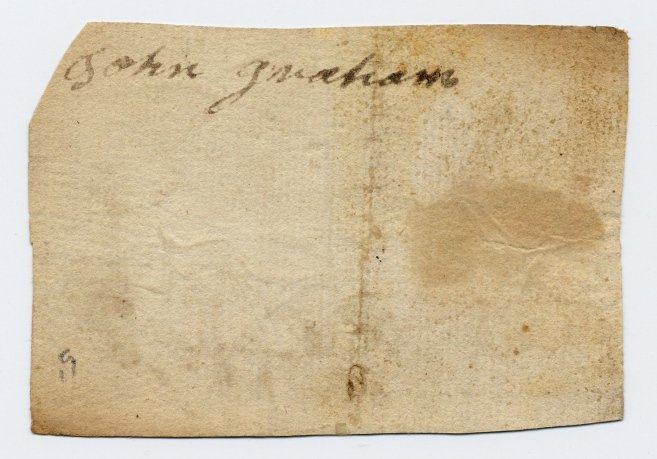 John graham